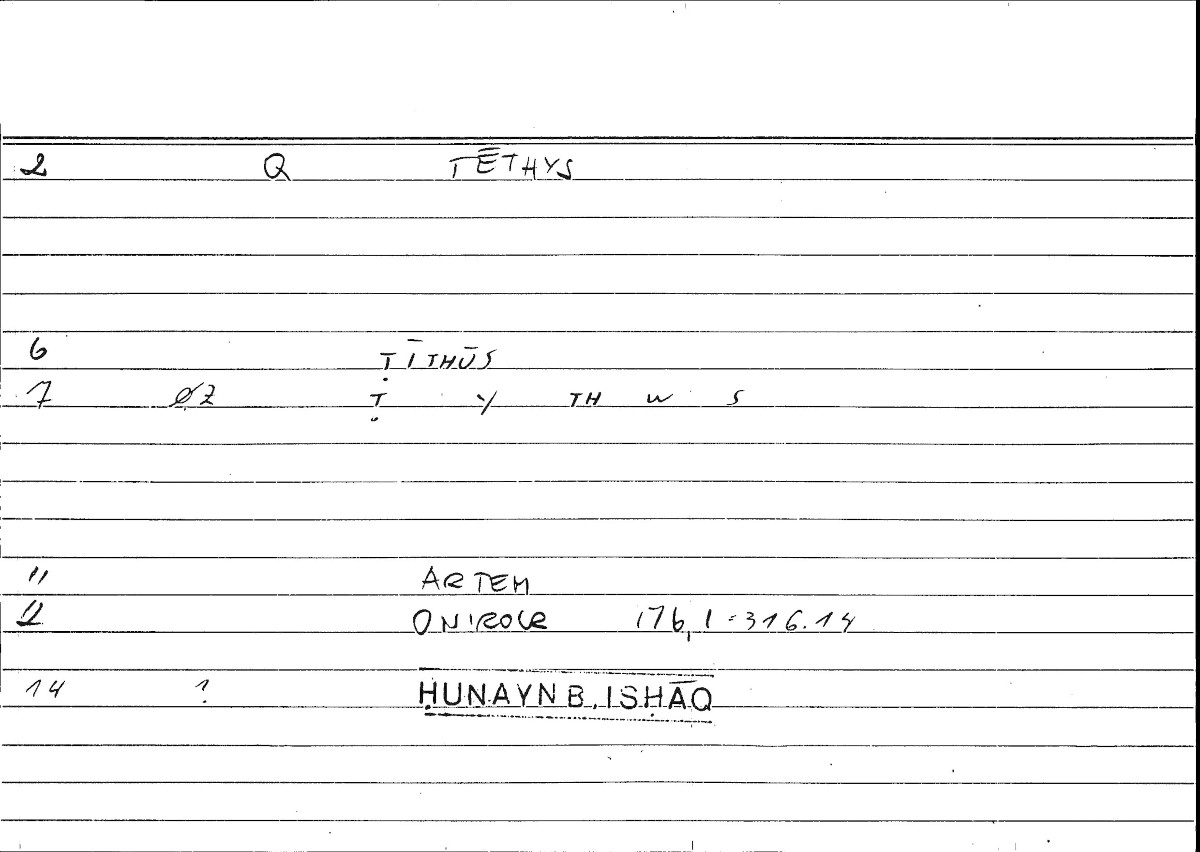 2 Q TĒTHYS
6 ṬĪTHŪS
7 ØZ Ṭ Y TH W S
11 ARTEM
12 ONIROCR 176,1=316.14
14 ? ḤUNAYN B. ISḤĀQ